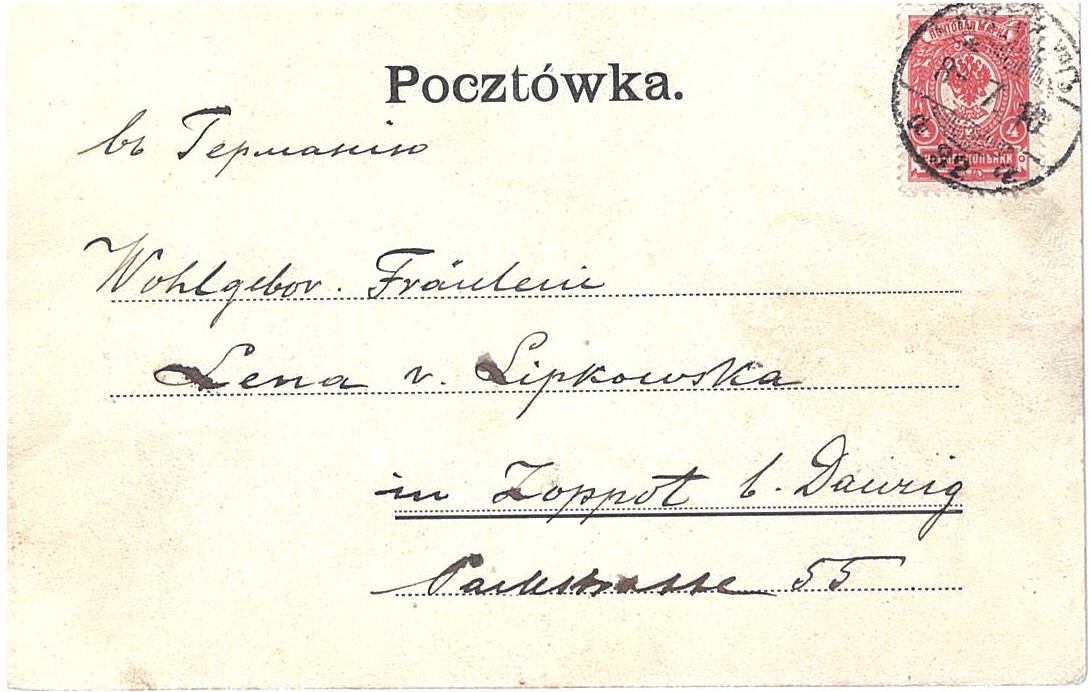 Pocztówka.
ПОЧТОВАЯ МАРКА
въ Германію
4 4
КОПѢЙКИ
82 a
Wohlgebor. Fräulein
Lena v. Lipkowska
in Zoppot b. Danzig
Parkstrasse 55